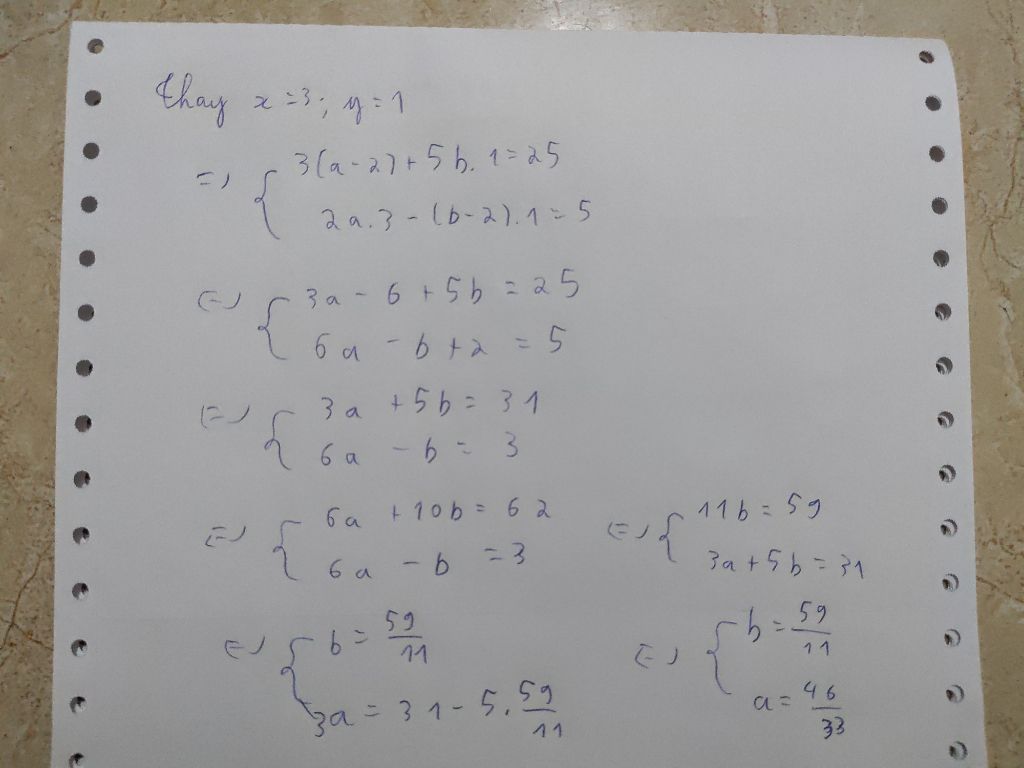 Thay x = 3; y = 1
=> { 3(a - 2) + 5b. 1 = 25
2a.3 - (b - 2).1 = 5
(=) { 3a - 6 + 5b = 25
6a - b + 2 = 5
(=) { 3a + 5b = 31
6a - b = 3
(=) { 6a + 10b = 62
6a - b = 3
(=) { 11b = 59
3a + 5b = 31
(=) { b = 59/11
3a = 31 - 5. 59/11
(=) { b = 59/11
a = 46/33